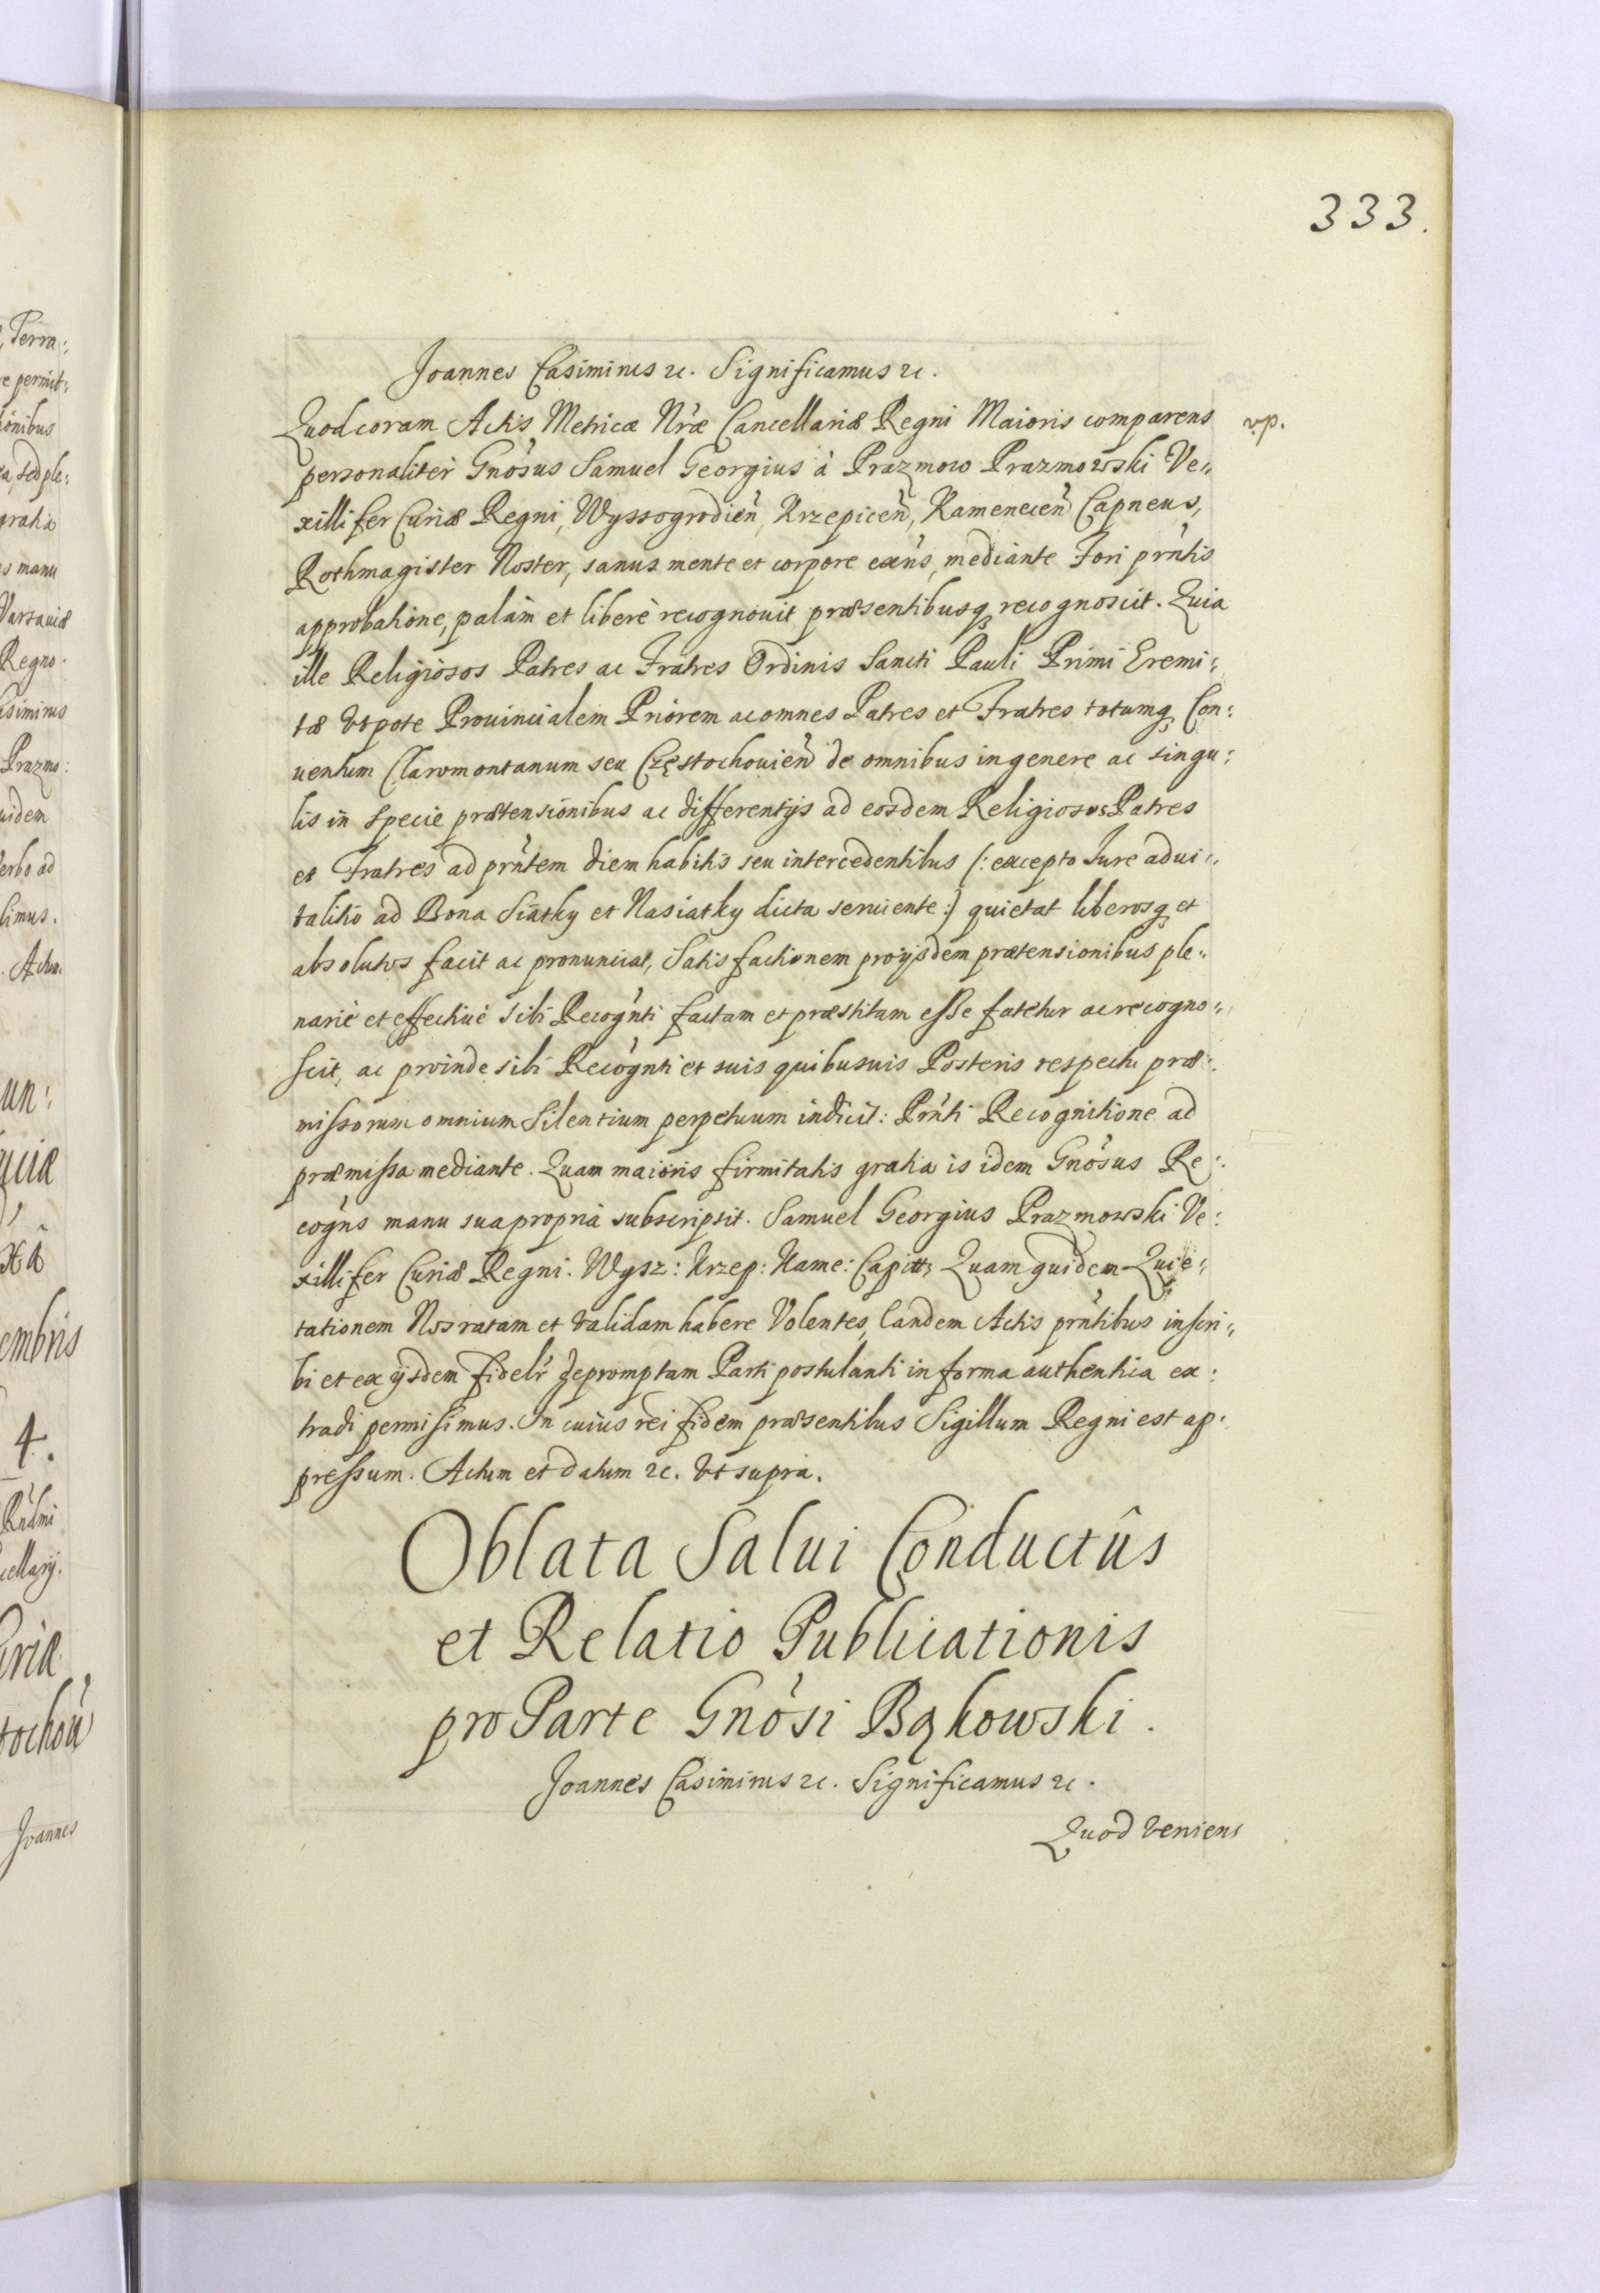 333.
Joannes Casimirus &c. Significamus &c.
Quod coram Actis Metricæ Nræ Cancellariæ Regni Maioris comparens
vp.
personaliter Gnosus Samuel Georgius à Prazmow Prazmowski Ve:
xillifer Curiæ Regni, Wyssogrodien, Krzepicen, Kamenecen Capneus,
Rothmagister Noster, sanus mente et corpore exns, mediante Fori prntis
approbatione, palàm et liberè recognouit præsentibusq recognoscit. Quia
ille Religiosos Patres ac Fratres Ordinis Sancti Pauli Primi Eremi:
tæ vtpote Prouincialem Priorem ac omnes Patres et Fratres totumq Con:
uentum Claromontanum seu Częstochouien de omnibus in genere ac singu:
lis in specie prætensionibus ac differentijs ad eosdem Religiosos Patres
et Fratres ad prntem diem habitis seu intercedentibus (: excepto Jure adui:
talitio ad Bona Siatky et Nasiatky dicta seruiente :) quietat liberosq et
absolutos facit ac pronunciat, Satisfactionem pro ijsdem prætensionibus ple:
nariè et effectiuè sibi Recognti factam et præstitam esse fatetur ac recogno:
scit, ac proinde sibi Recognti et suis quibusuis Posteris respectu præ:
missorum omnium Silentium perpetuum indicit: Prnti Recognitione ad
præmissa mediante. Quam maioris firmitatis gratia is idem Gnosus Re:
cogns manu sua propria subscripsit. Samuel Georgius Prazmowski Ve:
xillifer Curiæ Regni. Wysz: Krzep: Kame: Capitts Quam quidem Quie:
tationem Nos ratam et validam habere Volentes, Eandem Actis prntibus inscri:
bi et ex ijsdem fidelr depromptam Parti postulanti in forma authentica ex:
tradi permisimus. In cuius rei fidem præsentibus Sigillum Regni est ap:
pressum. Actum et datum &c. vt supra.
Oblata Salui Conductûs
et Relatio Publicationis
pro Parte Gnosi Bąkowski.
Joannes Casimirus &c. Significamus &c.
Quod veniens